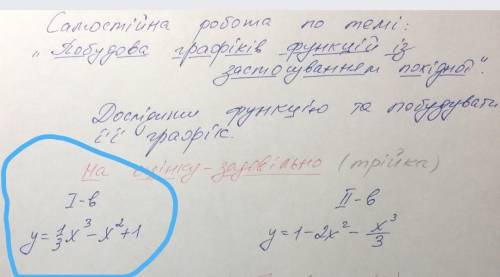 Самостійна робота по темі:
„Побудова графіків функцій із
застосуванням похідної".
Дослідити функцію та побудувати
її графік.
На оцінку - задовільно (трійка)
I-в
II-в
y = 1/3 x³ - x² + 1
y = 1 - 2x² - x³/3